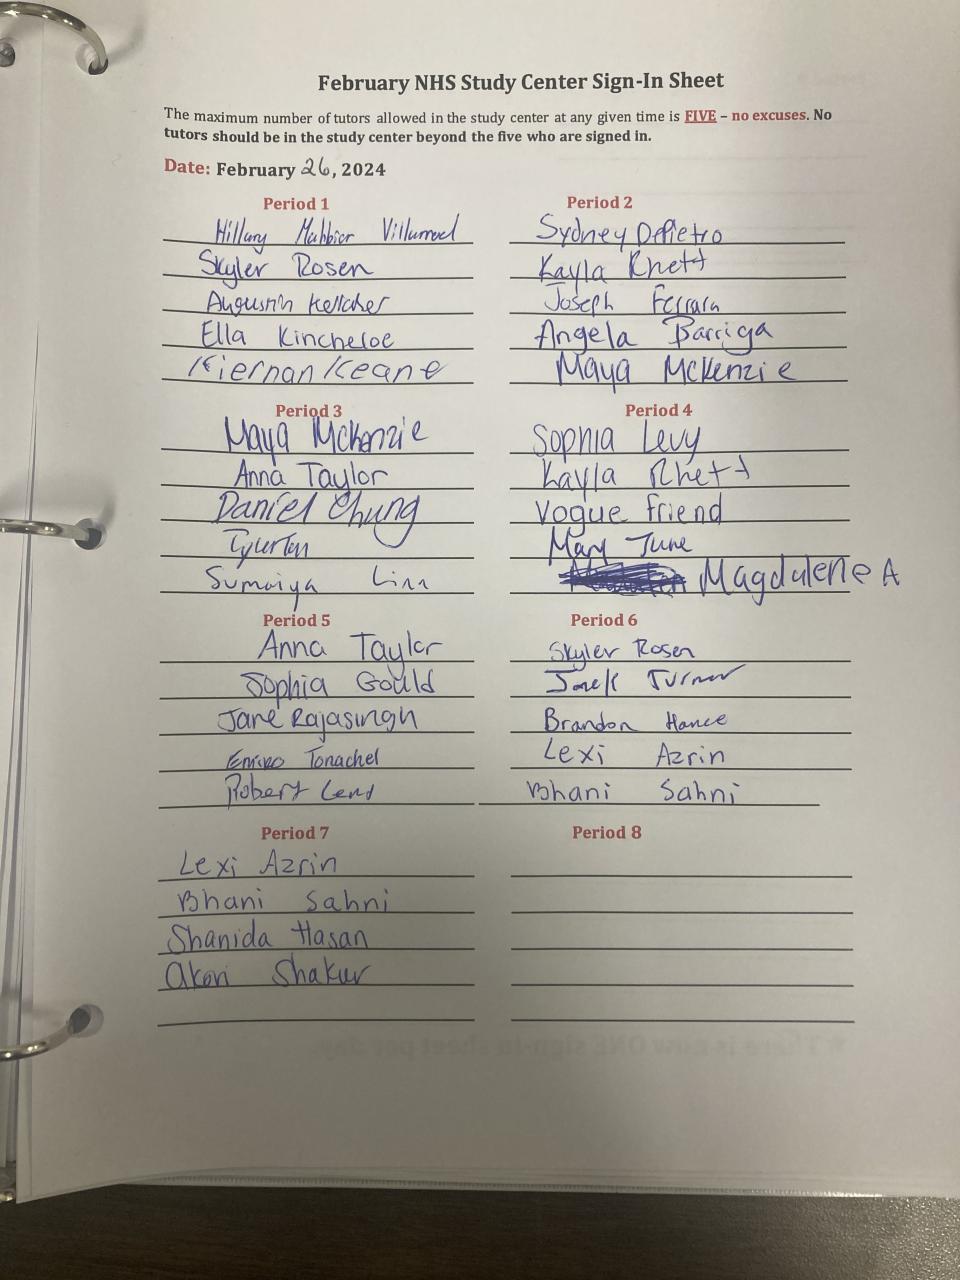 February NHS Study Center Sign-In Sheet
The maximum number of tutors allowed in the study center at any given time is FIVE – no excuses. No
tutors should be in the study center beyond the five who are signed in.
Date: February 26, 2024
Period 1
Hillary
Skyler Rosen
Augustin Kelleher
Ella Kincheloe
Kiernan Keane
Period 2
Sydney DePietro
Kayla Rhett
Joseph Ferrara
Angela Barriga
Maya McKenzie
Period 3
Maya McKenzie
Anna Taylor
Daniel Chung
Sumaiya
Period 4
Sophia Levy
Kayla Rhett
Vogue Friend
June
Magdalene A
Period 5
Anna Taylor
Sophia Gould
Jane Rajasingh
Tonachel
Robert
Period 6
Skyler Rosen
Turner
Brandon Hance
Lexi Azrin
Bhani Sahni
Period 7
Lexi Azrin
Bhani Sahni
Shanida Hasan
Akori Shakur
Period 8